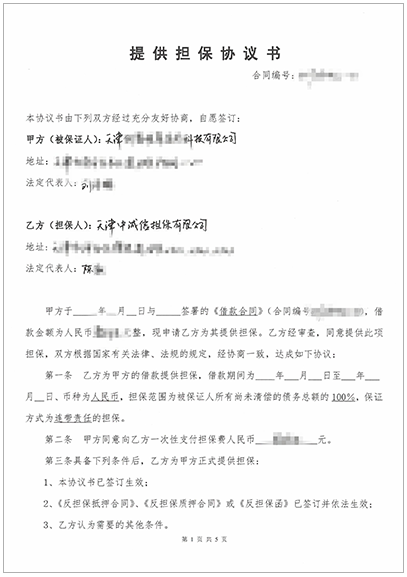 提供担保协议书
合同编号：
本协议书由下列双方经过充分友好协商，自愿签订：
甲方（被保证人）：天津 科技有限公司
地址：
法定代表人：
乙方（担保人）：天津中诚信担保有限公司
地址：
法定代表人：陈
甲方于____年__月__日与____签署的《借款合同》（合同编号 ，借
款金额为人民币 元整，现申请乙方为其提供担保。乙方经审查，同意提供此项
担保，双方根据国家有关法律、法规的规定，经协商一致，达成如下协议：
第一条 乙方为甲方的借款提供担保，借款期间为____年___月___日至___年___
月__日、币种为人民币，担保范围为被保证人所有尚未清偿的债务总额的 100%，保证
方式为连带责任的担保。
第二条 甲方同意向乙方一次性支付担保费人民币 元。
第三条具备下列条件后，乙方为甲方正式提供担保：
1、本协议书已签订生效；
2、《反担保抵押合同》、《反担保质押合同》或《反担保函》已签订并依法生效；
3、乙方认为需要的其他条件。
第 1 页 共 5 页